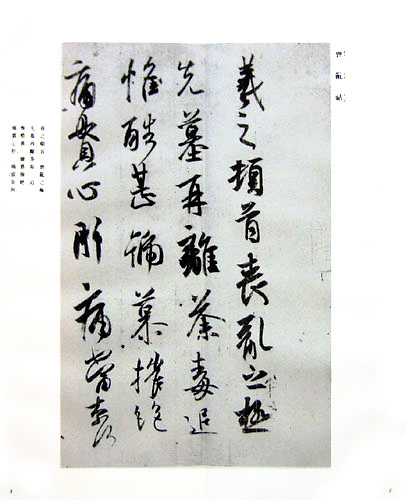 喪亂帖
羲之頓首喪亂之極
先墓再離荼毒追
惟酷甚號慕摧絕
痛貫心肝痛當奈何
羲之頓首 喪亂之極
先墓再離荼毒 追
惟酷甚 號慕摧絕
痛貫心肝 痛當奈何